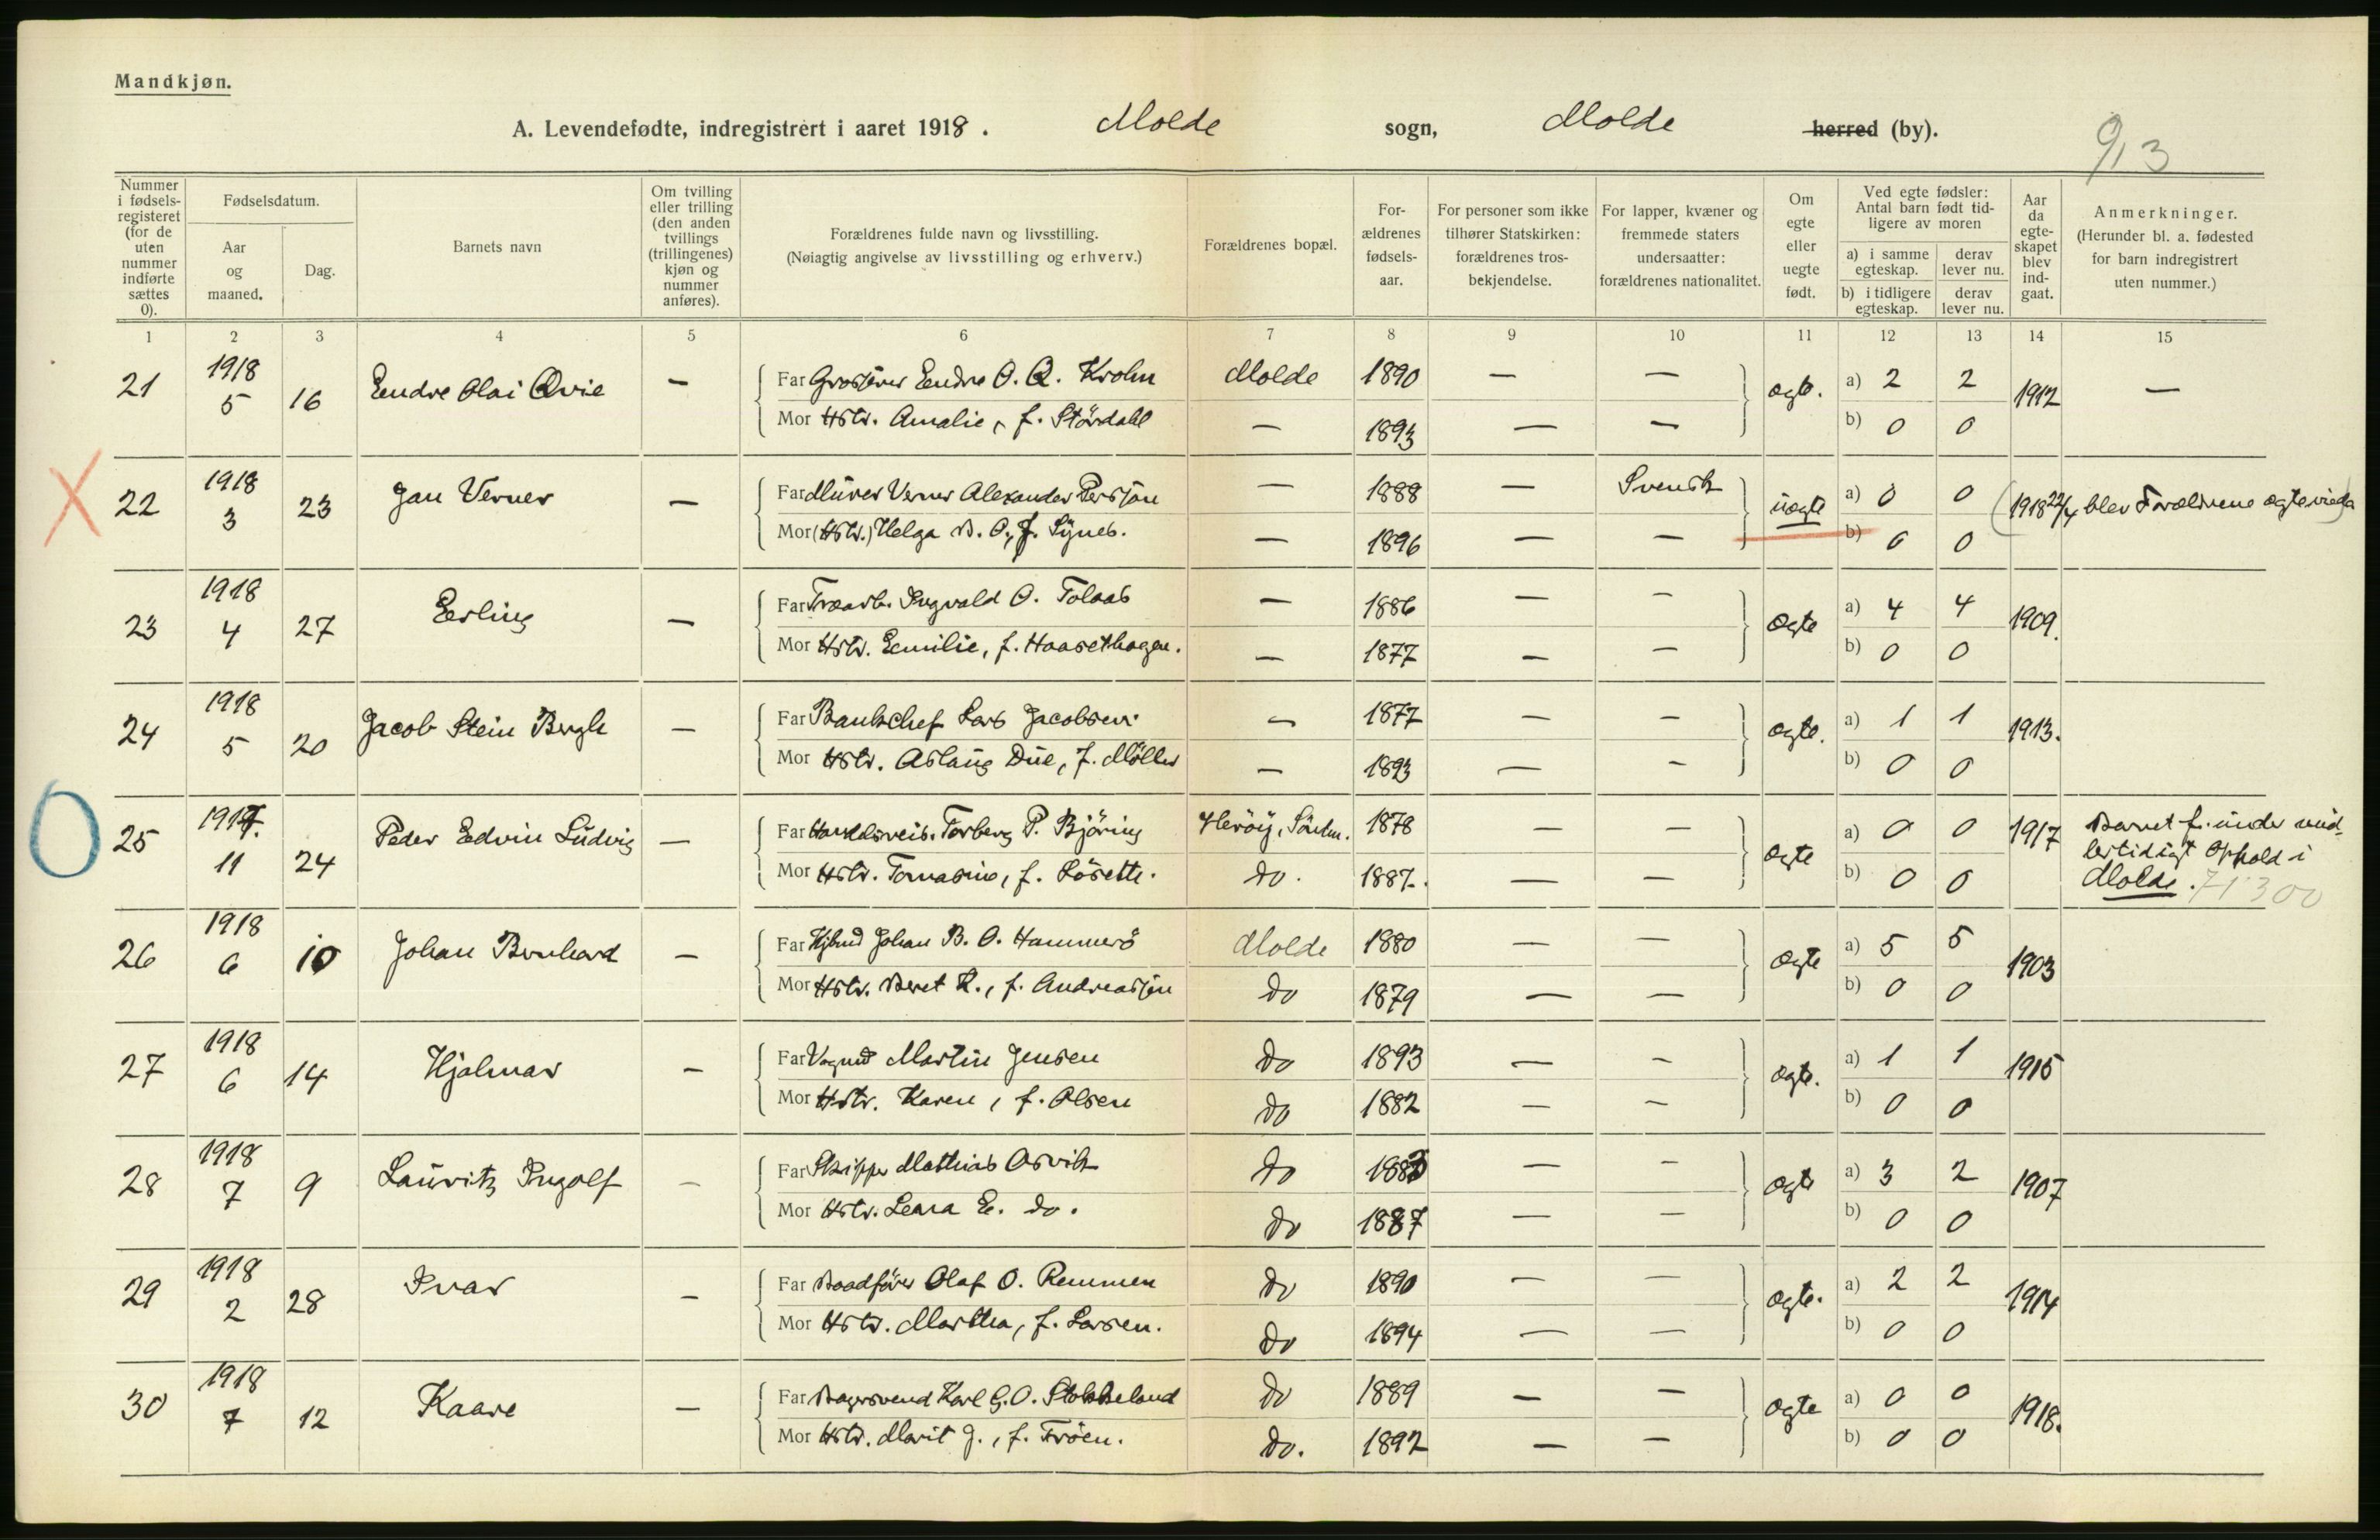 Mandkjøn.
A. Levendefødte, indregistrert i aaret 1918. Molde sogn, Molde herred (by).
9,3
Nummer i fødselsregisteret (for de uten nummer indførte sættes 0).
Fødselsdatum.
Aar og maaned.
Dag.
Barnets navn
Om tvilling eller trilling (den anden tvillings (trillingenes) kjøn og nummer anføres).
Forældrenes fulde navn og livsstilling.
(Nøiagtig angivelse av livsstilling og erhverv.)
Forældrenes bopæl.
Forældrenes fødselsaar.
For personer som ikke tilhører Statskirken: forældrenes trosbekjendelse.
For lapper, kvæner og fremmede staters undersaatter: forældrenes nationalitet.
Om egte eller uegte født.
Ved egte fødsler: Antal barn født tidligere av moren
a) i samme egteskap.
derav lever nu.
b) i tidligere egteskap.
derav lever nu.
Aar da egteskapet blev indgaat.
Anmerkninger.
(Herunder bl. a. fødested for barn indregistrert uten nummer.)
1 2 3 4 5 6 7 8 9 10 11 12 13 14 15
21 1918 5 16 Eendre Olai Qvie — Far Eendre O. Q. Krohn Molde 1890 — — ægte. a) 2 2 1912 —
Mor Hstr. Amalie, f. Stördahl — 1893 — — b) 0 0
X 22 1918 3 23 Jan Verner — Far Murer Verner Alexander Persson — 1888 — Svensk uægte a) 0 0 (1918 22/4 blev Forældrene ægteviede)
Mor (Hstr.) Helga B. O., f. Synes. — 1896 — — b) 0 0
23 1918 4 27 Eerling — Far Ingvald O. Tolaas — 1886 — — ægte a) 4 4 1909.
Mor Hstr. Eemilie, f. Haasethagen. — 1877 — — b) 0 0
24 1918 5 20 Jacob Stein Bergh — Far Bankchef Lars Jacobsen. — 1877 — — ægte. a) 1 1 1913.
Mor Hstr. Aslaug Due, f. Möller — 1893 — — b) 0 0
O 25 1917. 11 24 Peder Edvin Ludvig — Far Handelsreis. Torberg P. Björing Heröy, Söndm. 1878 — — ægte a) 0 0 1917 Barnet f. under mid-
lertidigt Ophold i
Molde. 71300
Mor Hstr. Tomasine, f. Löseth. do. 1887. — — b) 0 0
26 1918 6 10 Johan Bernhard — Far Johan B. O. Hammerö Molde 1880 — — ægte a) 5 5 1903
Mor Hstr. Beret K., f. Andreassen do 1879 — — b) 0 0
27 1918 6 14 Hjalmar — Far Martin Jensen do 1893 — — ægte. a) 1 1 1915
Mor Hstr. Karen, f. Olsen do 1882 — — b) 0 0
28 1918 7 9 Lauritz Ingolf — Far Skipper Mathias Orvik do 1883 — — ægte a) 3 2 1907
Mor Hstr. Leara E. do. do 1887 — — b) 0 0
29 1918 2 28 Ivar — Far Baadfører Olaf O. Remmen do 1890 — — ægte. a) 2 2 1914
Mor Hstr. Martha, f. Larsen. do 1894 — — b) 0 0
30 1918 7 12 Kaare — Far Bagersvend Karl G. O. Stokkeland do 1889 — — ægte a) 0 0 1918.
Mor Hstr. Marit J., f. Fröen. do. 1892 — — b) 0 0